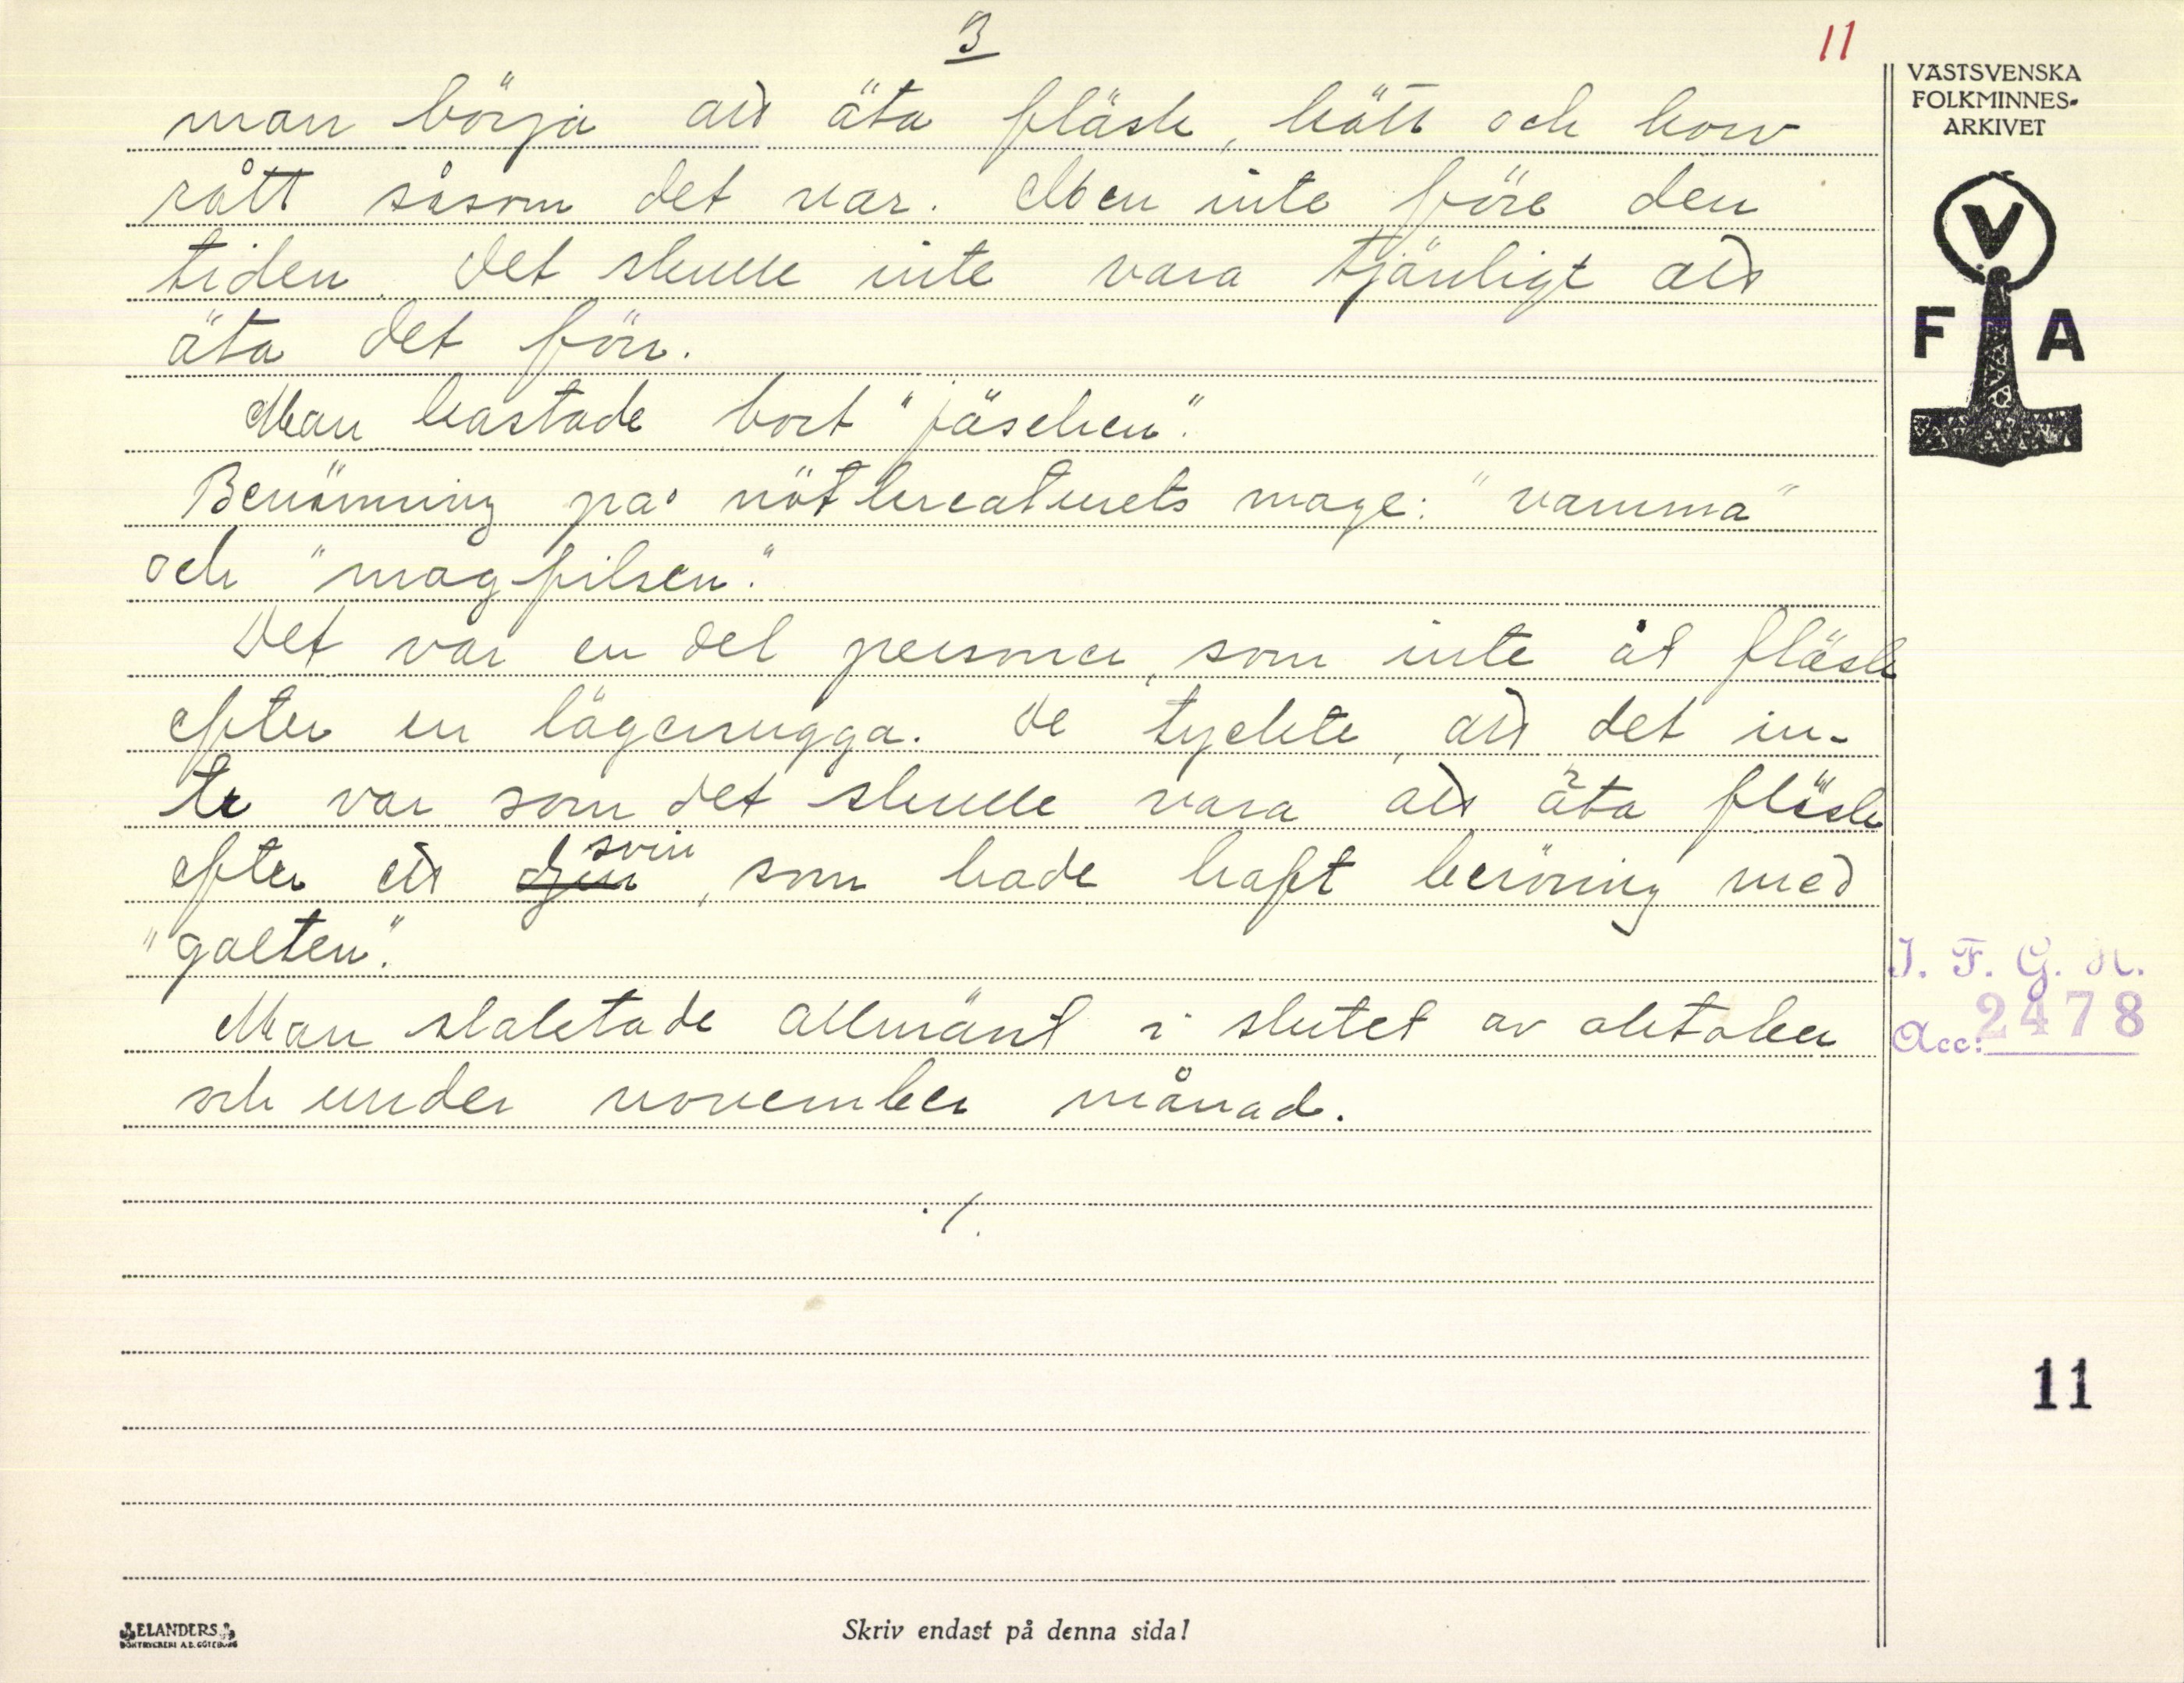 3
11
man börja att äta fläsk, kött och korv
rått såsom det var. Men inte före den
tiden. Det skulle inte vara tjänligt att
äta det förr.
Man kastade bort "jäseken".
Benämning på nötkreaturets mage: "vamma"
och "magpilsen".
Det var en del personer, som inte åt fläsk
efter en lägenugga. De tyckte, att det in-
te var som det skulle vara att äta fläsk
efter ett svin, som hade haft beröring med
"galten".
Man slaktade allmänt i slutet av oktober
och under november månad.
./.
VÄSTSVENSKA
FOLKMINNES-
ARKIVET
V
F A
I. F. G. H.
Acc: 2478
11
ELANDERS
BOKTRYCKERI A.B. GÖTEBORG
Skriv endast på denna sida!